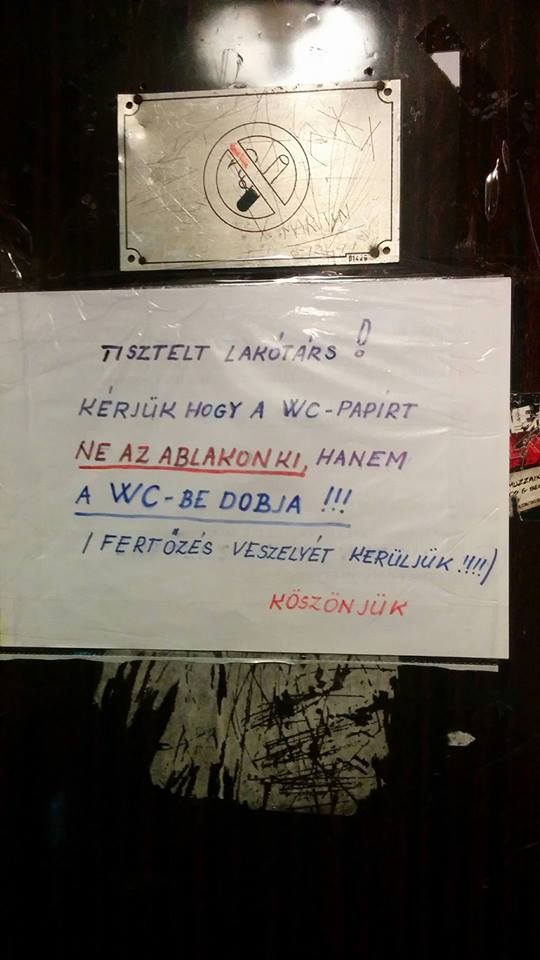 TISZTELT LAKÓTÁRS!
KÉRJÜK HOGY A WC-PAPÍRT
NE AZ ABLAKON KI, HANEM
A WC-BE DOBJA !!!
(FERTŐZÉS VESZELYÉT KERÜLJÜK !!!!)
KÖSZÖNJÜK